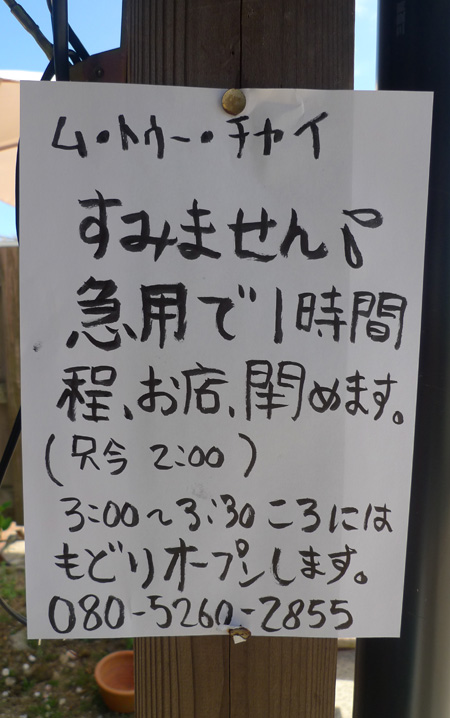 ム・トゥー・チャイ
すみません
急用で1時間
程、お店、閉めます。
(只今 2:00)
3:00〜3:30ころには
もどりオープンします。
080-5260-2855